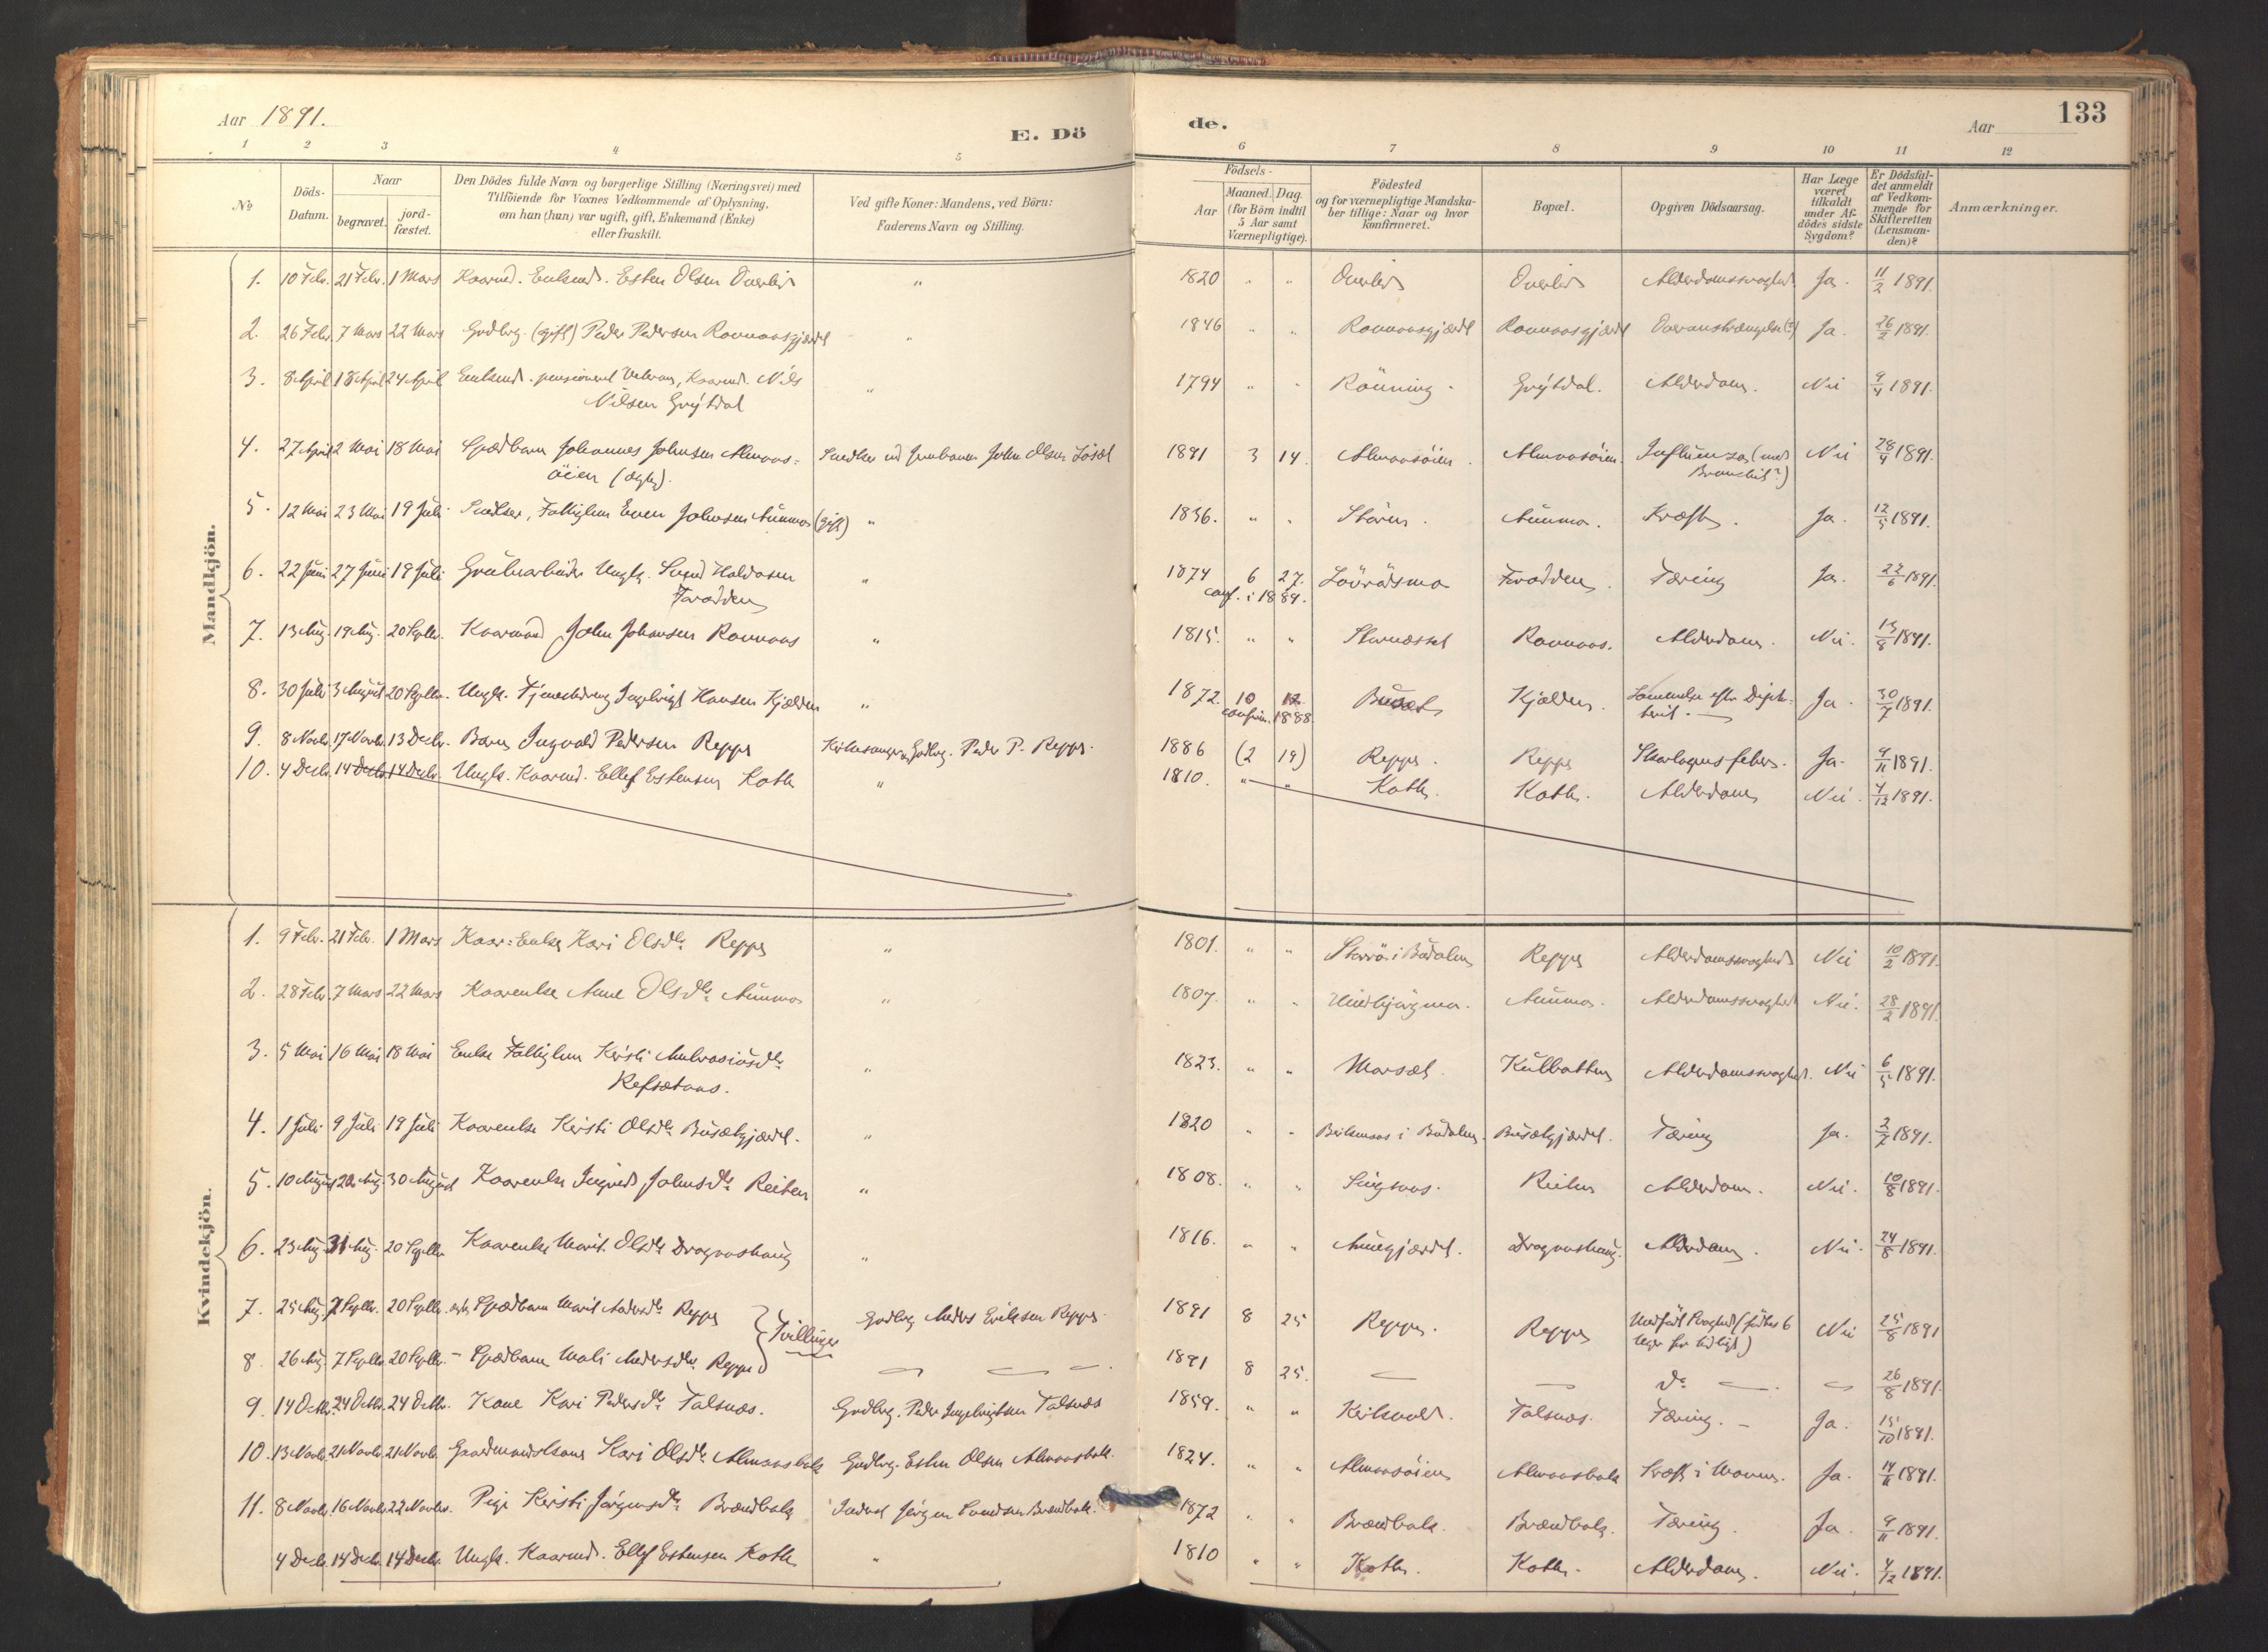 Aar 1891.
E. Dö
de.
Aar
133
1 2 3 4 5 6 7 8 9 10 11 12
No
Döds-Datum.
Naar
begravet.
jord-fæstet.
Den Dödes fulde Navn og borgerlige Stilling (Næringsvei) med
Tilföiende for Voxnes Vedkommende af Oplysning,
om han (hun) var ugift, gift, Enkemand (Enke)
eller fraskilt.
Ved gifte Koner: Mandens, ved Börn:
Faderens Navn og Stilling.
Födsels-
Aar
Maaned. Dag.
(for Börn indtil
5 Aar samt
Værnepligtige).
Födested
og for værnepligtige Mandska-
ber tillige: Naar og hvor
konfirmeret.
Bopæl.
Opgiven Dödsaarsag.
Har Læge
været
tilkaldt
under Af-
dödes sidste
Sygdom?
Er Dödsfal-
det anmeldt
af Vedkom-
mende for
Skifteretten
(Lensman-
den)?
Anmærkninger.
Mandkjön.
1. 10 Febr. 21 Febr. 1 Mars Kaarmd. Enkemd. Esten Olsen Overlid " 1820 " " Overlid Overlid Alderdomssvaghed Ja. 11/2 1891.
2. 26 Febr. 7 Mars 22 Mars Grdbrg. (gift) Peder Pedersen Ramaasgjærdet " 1846 " " Ramaasgjærdet Ramaasgjærdet Overanstrængelse (?) Ja. 26/2 1891.
3. 8 April 18 April 24 April Enkemd. pensioneret Veteran, Kaarmd. Nils
Nilsen Grýtdal " 1794 " " Rönning. Grýtdal. Alderdom. Nei 9/4 1891.
4. 27 April 2 Mai 18 Mai Spædbarn Johannes Johnsen Almaas-
öien (ægte). Snedker ved Jernbanen John Olsen 1891 3 14. Almaasöien. Almaasöien. Influenza (med
Bronchit?) Nei 28/4 1891.
5. 12 Mai 23 Mai 19 Juli Snedker, Fattiglem Even Johnsen Aunmo (gift) " 1836. " " Stören. Aunmo. Kræft. Ja. 12/5 1891.
6. 22 Juni 27 Juni 19 Juli Grubearbeider Ungk. Svend Haldosen
Fradden " 1874 6 27.
conf. i 1889. Fradden. Tæring Ja. 22/6 1891.
7. 13 Aug. 19 Aug. 20 Septbr. Kaarmand John Johansen Ramaas " 1815. " " Ramaas. Alderdom. Nei. 13/8 1891.
8. 30 Juli 3 August 20 Septbr. Ungk. Tjenestedreng Ingebrigt Hansen Kjælden " 1872. 10 12.
confirm. 1888. Busæt Kjælden. Lammelse efter Diph-
terit. Ja. 30/7 1891.
9. 8 Novbr. 17 Novbr. 13 Decbr. Barn Ingvald Pedersen Reppe Kirkesanger, Grdbrg. Peder P. Reppe. 1886 (2 19) Reppe. Reppe Skarlagensfeber. Ja. 9/11 1891.
10. 4 Decbr. 14 Decbr. 14 Decbr. Ungk. Kaarmd. Ellef Estensen Koth " 1810. " " Koth. Koth. Alderdom Nei. 4/12 1891.
Kvindekjön.
1. 9 Febr. 21 Febr. 1 Mars Kaar-Enke Kari Olsdtr Reppe " 1801. " " i Budalen Reppe Alderdomssvaghed Nei 10/2 1891.
2. 28 Febr. 7 Mars 22 Mars Kaarenke Anne Olsdtr Aunmo " 1807. " " Aunmo. Alderdomssvaghed Nei. 28/2 1891.
3. 5 Mai 16 Mai 18 Mai Enke Fattiglem Kirsti Ambrosiusdtr
Refsetaas. " 1823. " " Morsæt. Kulbotten Alderdomssvaghed. Nei 6/5 1891.
4. 1 Juli 9 Juli 19 Juli Kaarenke Kirsti Olsdtr Busætgjærdet. " 1820 " " i Budalen. Busætgjærdet. Tæring Ja. 2/7 1891.
5. 10 August 20 Aug. 30 August Kaarenke Ingrid Johnsdtr Reiten " 1808. " " Singsaas. Reiten Alderdom. Nei. 10/8 1891.
6. 23 Aug. 31 Aug. 20 Septbr. Kaarenke Marit Olsdtr Dragaashaug " 1816. " " Aunegjærdet. Dragaashaug. Alderdom. Nei. 24/8 1891.
7. 25 Aug. 7 Septbr. 20 Septbr. ægte Spædbarn Marit Andersdtr Reppe } Tvillinger Grdbrg Anders Eriksen Reppe. 1891 8 25 Reppe. Reppe Medfödt Svaghed (födtes 6
Uger for tidligt) Nei 25/8 1891
8. 26 Aug. 7 Septbr. 20 Septbr. – Spædbarn Mali Andersdtr Reppe 1891 8 25. do 26/8 1891.
9. 14 Octbr. 24 Octbr. 24 Octbr. Kone Kari Pedersdtr Talsnæs. Grdbrg. Peder Ingebrigtsen Talsnæs 1859. " " Kirkvold. Talsnæs. Tæring. – Ja. 15/10 1891.
10. 13 Novbr. 21 Novbr. 21 Novbr. Gaardmandskone Kari Olsdtr Almaasbak Grdbrg. Esten Olsen Almaasbak. 1824. " " Almaasöien Almaasbak Kræft i Maven. Ja. 14/11 1891.
11. 8 Novbr. 16 Novbr. 22 Novbr. Pige Kirsti Jörgensdtr Brændbak Inderst Jörgen Svendsen Brændbak. 1872 " " Brændbak. Brændbak. Tæring. Ja. 9/11 1891.
4 Decbr. 14 Decbr. 14 Decbr. Ungk. Kaarmd. Ellef Estensen Koth " 1810 " " Koth. Koth. Alderdom. Nei. 4/12 1891.